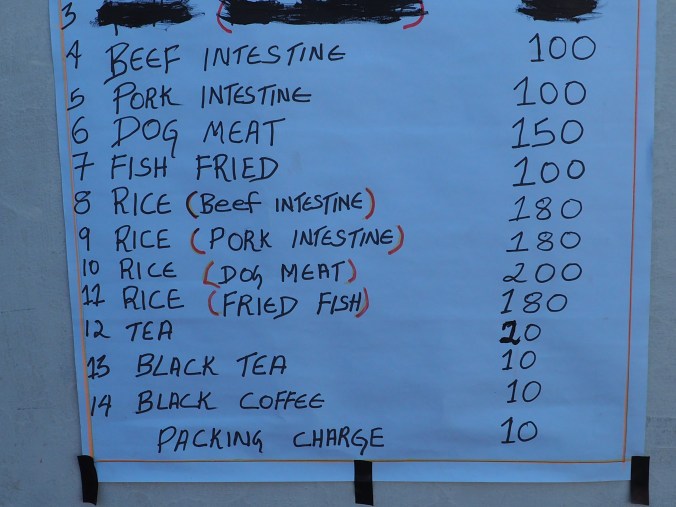 3
4 BEEF INTESTINE 100
5 PORK INTESTINE 100
6 DOG MEAT 150
7 FISH FRIED 100
8 RICE (Beef INTESTINE) 180
9 RICE (PORK INTESTINE) 180
10 RICE (DOG MEAT) 200
11 RICE (FRIED FISH) 180
12 TEA 20
13 BLACK TEA 10
14 BLACK COFFEE 10
PACKING CHARGE 10